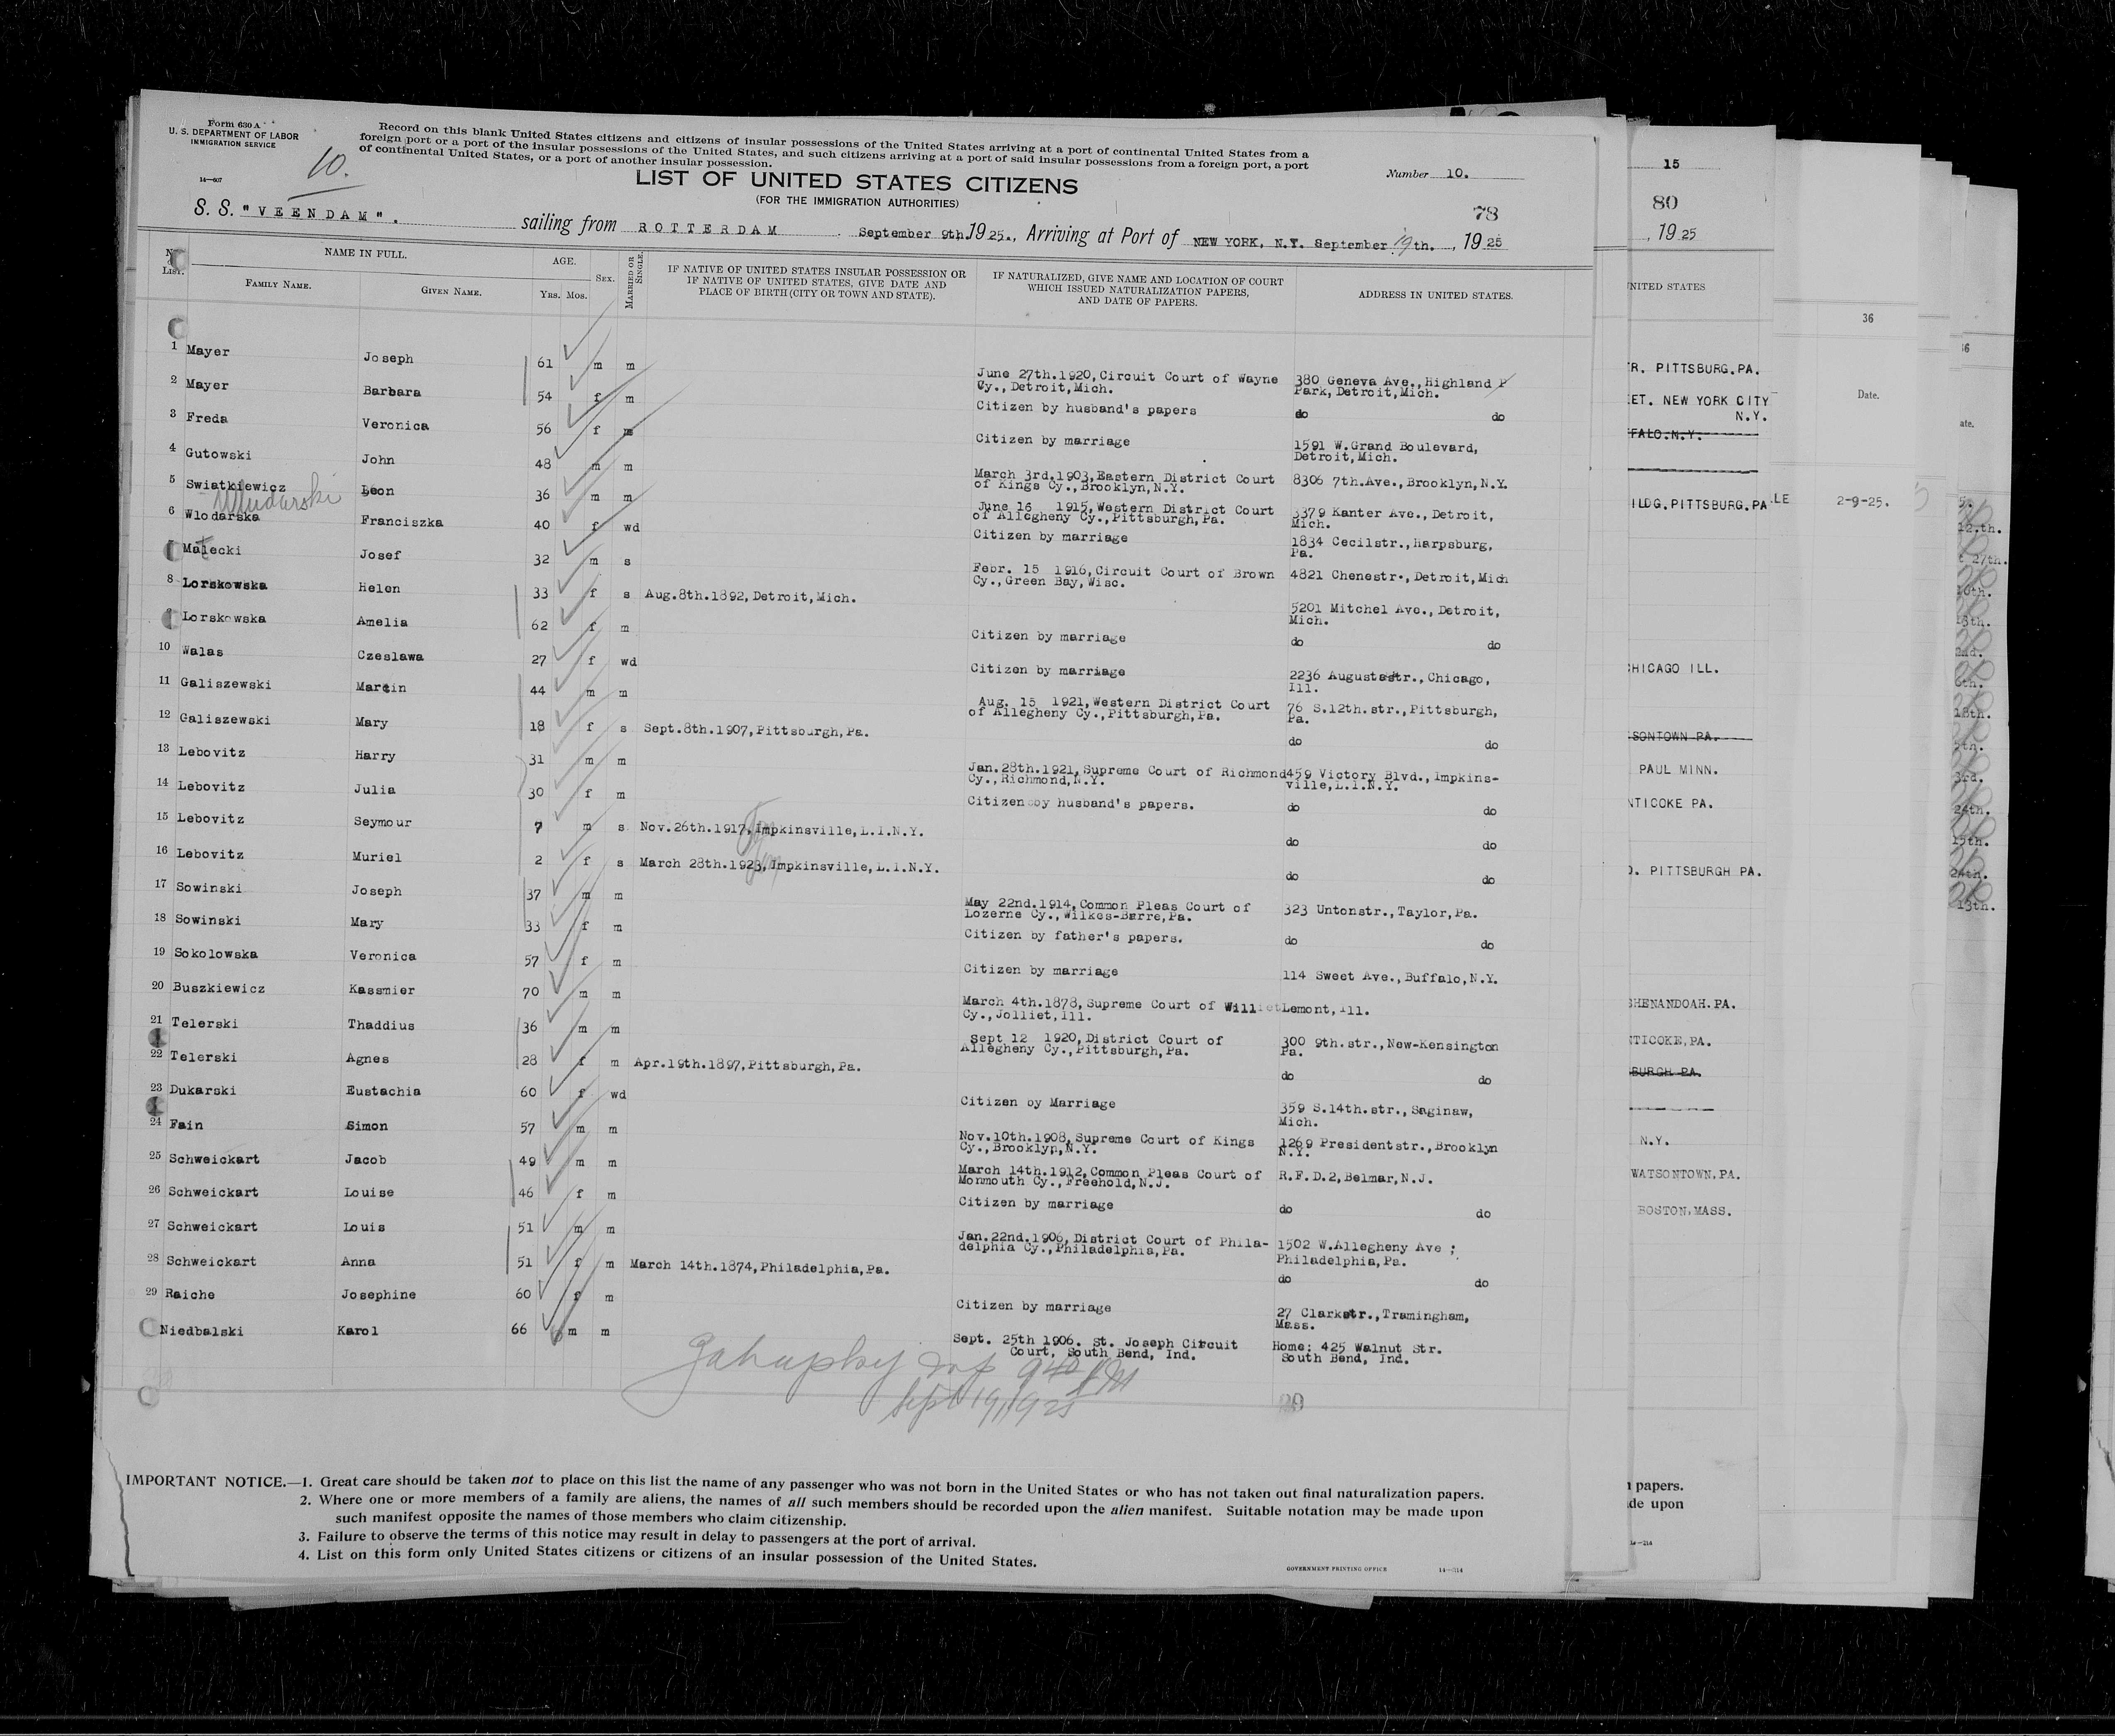 Form 630 A
U. S. DEPARTMENT OF LABOR
IMMIGRATION SERVICE
14—607
10.
Record on this blank United States citizens and citizens of insular possessions of the United States arriving at a port of continental United States from a
foreign port or a port of the insular possessions of the United States, and such citizens arriving at a port of said insular possessions from a foreign port, a port
of continental United States, or a port of another insular possession.
LIST OF UNITED STATES CITIZENS
(FOR THE IMMIGRATION AUTHORITIES)
Number 10.
78
S. S. "VEENDAM". sailing from ROTTERDAM September 9th. 1925., Arriving at Port of NEW YORK, N.Y. September 19th. , 1925
No. LIST. NAME IN FULL. AGE. SEX. MARRIED OR SINGLE. IF NATIVE OF UNITED STATES INSULAR POSSESSION OR IF NATIVE OF UNITED STATES, GIVE DATE AND PLACE OF BIRTH (CITY OR TOWN AND STATE). IF NATURALIZED, GIVE NAME AND LOCATION OF COURT WHICH ISSUED NATURALIZATION PAPERS, AND DATE OF PAPERS. ADDRESS IN UNITED STATES.
FAMILY NAME. GIVEN NAME. YRS. MOS.
1 Mayer Joseph 61 m m June 27th.1920, Circuit Court of Wayne Cy., Detroit, Mich. 380 Geneva Ave., Highland P Park, Detroit, Mich.
2 Mayer Barbara 54 f m Citizen by husband's papers do do
3 Freda Veronica 56 f m Citizen by marriage 1591 W.Grand Boulevard, Detroit, Mich.
4 Gutowski John 48 m m March 3rd.1903, Eastern District Court of Kings Cy., Brooklyn, N.Y. 8306 7th.Ave., Brooklyn, N.Y.
5 Swiatkiewicz Leon 36 m m June 16 1915, Western District Court of Allegheny Cy., Pittsburgh, Pa. 3379 Kanter Ave., Detroit, Mich.
Wludarski
6 Wlodarska Franciszka 40 f wd Citizen by marriage 1834 Cecilstr., Harpsburg, Pa.
7 Malecki Josef 32 m s Febr. 15 1916, Circuit Court of Brown Cy., Green Bay, Wisc. 4821 Chenestr., Detroit, Mich
8 Lorskowska Helen 33 f s Aug.8th.1892, Detroit, Mich. 5201 Mitchel Ave., Detroit, Mich.
9 Lorskowska Amelia 62 f m Citizen by marriage do do
10 Walas Czeslawa 27 f wd Citizen by marriage 2236 Augustastr., Chicago, Ill.
11 Galiszewski Martin 44 m m Aug. 15 1921, Western District Court of Allegheny Cy., Pittsburgh, Pa. 76 S.12th.str., Pittsburgh, Pa.
12 Galiszewski Mary 18 f s Sept.8th.1907, Pittsburgh, Pa. do do
13 Lebovitz Harry 31 m m Jan.28th.1921, Supreme Court of Richmond Cy., Richmond, N.Y. 459 Victory Blvd., Impkins-ville, L.I.N.Y.
14 Lebovitz Julia 30 f m Citizen by husband's papers. do do
15 Lebovitz Seymour 7 m s Nov.26th.1917, Impkinsville, L.I.N.Y. do do
16 Lebovitz Muriel 2 f s March 28th.1923, Impkinsville, L.I.N.Y. do do
17 Sowinski Joseph 37 m m May 22nd.1914, Common Pleas Court of Lozerne Cy., Wilkes-Barre, Pa. 323 Untonstr., Taylor, Pa.
18 Sowinski Mary 33 f m Citizen by father's papers. do do
19 Sokolowska Veronica 57 f m Citizen by marriage 114 Sweet Ave., Buffalo, N.Y.
20 Buszkiewicz Kassmier 70 m m March 4th.1878, Supreme Court of Williet Cy., Jolliet, Ill. Lemont, Ill.
21 Telerski Thaddius 36 m m Sept 12 1920, District Court of Allegheny Cy., Pittsburgh, Pa. 300 9th.str., New-Kensington Pa.
22 Telerski Agnes 28 f m Apr.19th.1897, Pittsburgh, Pa. do do
23 Dukarski Eustachia 60 f wd Citizen by Marriage 359 S.14th.str., Saginaw, Mich.
24 Fain Simon 57 m m Nov.10th.1908, Supreme Court of Kings Cy., Brooklyn, N.Y. 1269 Presidentstr., Brooklyn N.Y.
25 Schweickart Jacob 49 m m March 14th.1912, Common Pleas Court of Monmouth Cy., Freehold, N.J. R.F.D.2, Belmar, N.J.
26 Schweickart Louise 46 f m Citizen by marriage do do
27 Schweickart Louis 51 m m Jan.22nd.1906, District Court of Phila-delphia Cy., Philadelphia, Pa. 1502 W.Allegheny Ave ; Philadelphia, Pa.
28 Schweickart Anna 51 f m March 14th.1874, Philadelphia, Pa. do do
29 Raiche Josephine 60 f m Citizen by marriage 27 Clarkstr., Tramingham, Mass.
Niedbalski Karol 66 m m Sept. 25th 1906. St. Joseph Circuit Court, South Bend, Ind. Home: 425 Walnut Str. South Bend, Ind.
940 AM
Sept 19 1925
IMPORTANT NOTICE.—1. Great care should be taken not to place on this list the name of any passenger who was not born in the United States or who has not taken out final naturalization papers.
2. Where one or more members of a family are aliens, the names of all such members should be recorded upon the alien manifest. Suitable notation may be made upon
such manifest opposite the names of those members who claim citizenship.
3. Failure to observe the terms of this notice may result in delay to passengers at the port of arrival.
4. List on this form only United States citizens or citizens of an insular possession of the United States.
GOVERNMENT PRINTING OFFICE
15
80
, 1925
NITED STATES
R. PITTSBURG.PA.
ET. NEW YORK CITY
N.Y.
FALO.N.Y.
ILDG.PITTSBURG.PA
HICAGO ILL.
SONTOWN PA.
PAUL MINN.
NTICOKE PA.
O. PITTSBURGH PA.
SHENANDOAH.PA.
TICOKE,PA.
BURGH PA.
N.Y.
WATSONTOWN,PA.
BOSTON,MASS.
papers.
de upon
36
Date.
LE
2-9-25.
ate.
12.th.
27th.
24th.
15th.
24th.
13th.